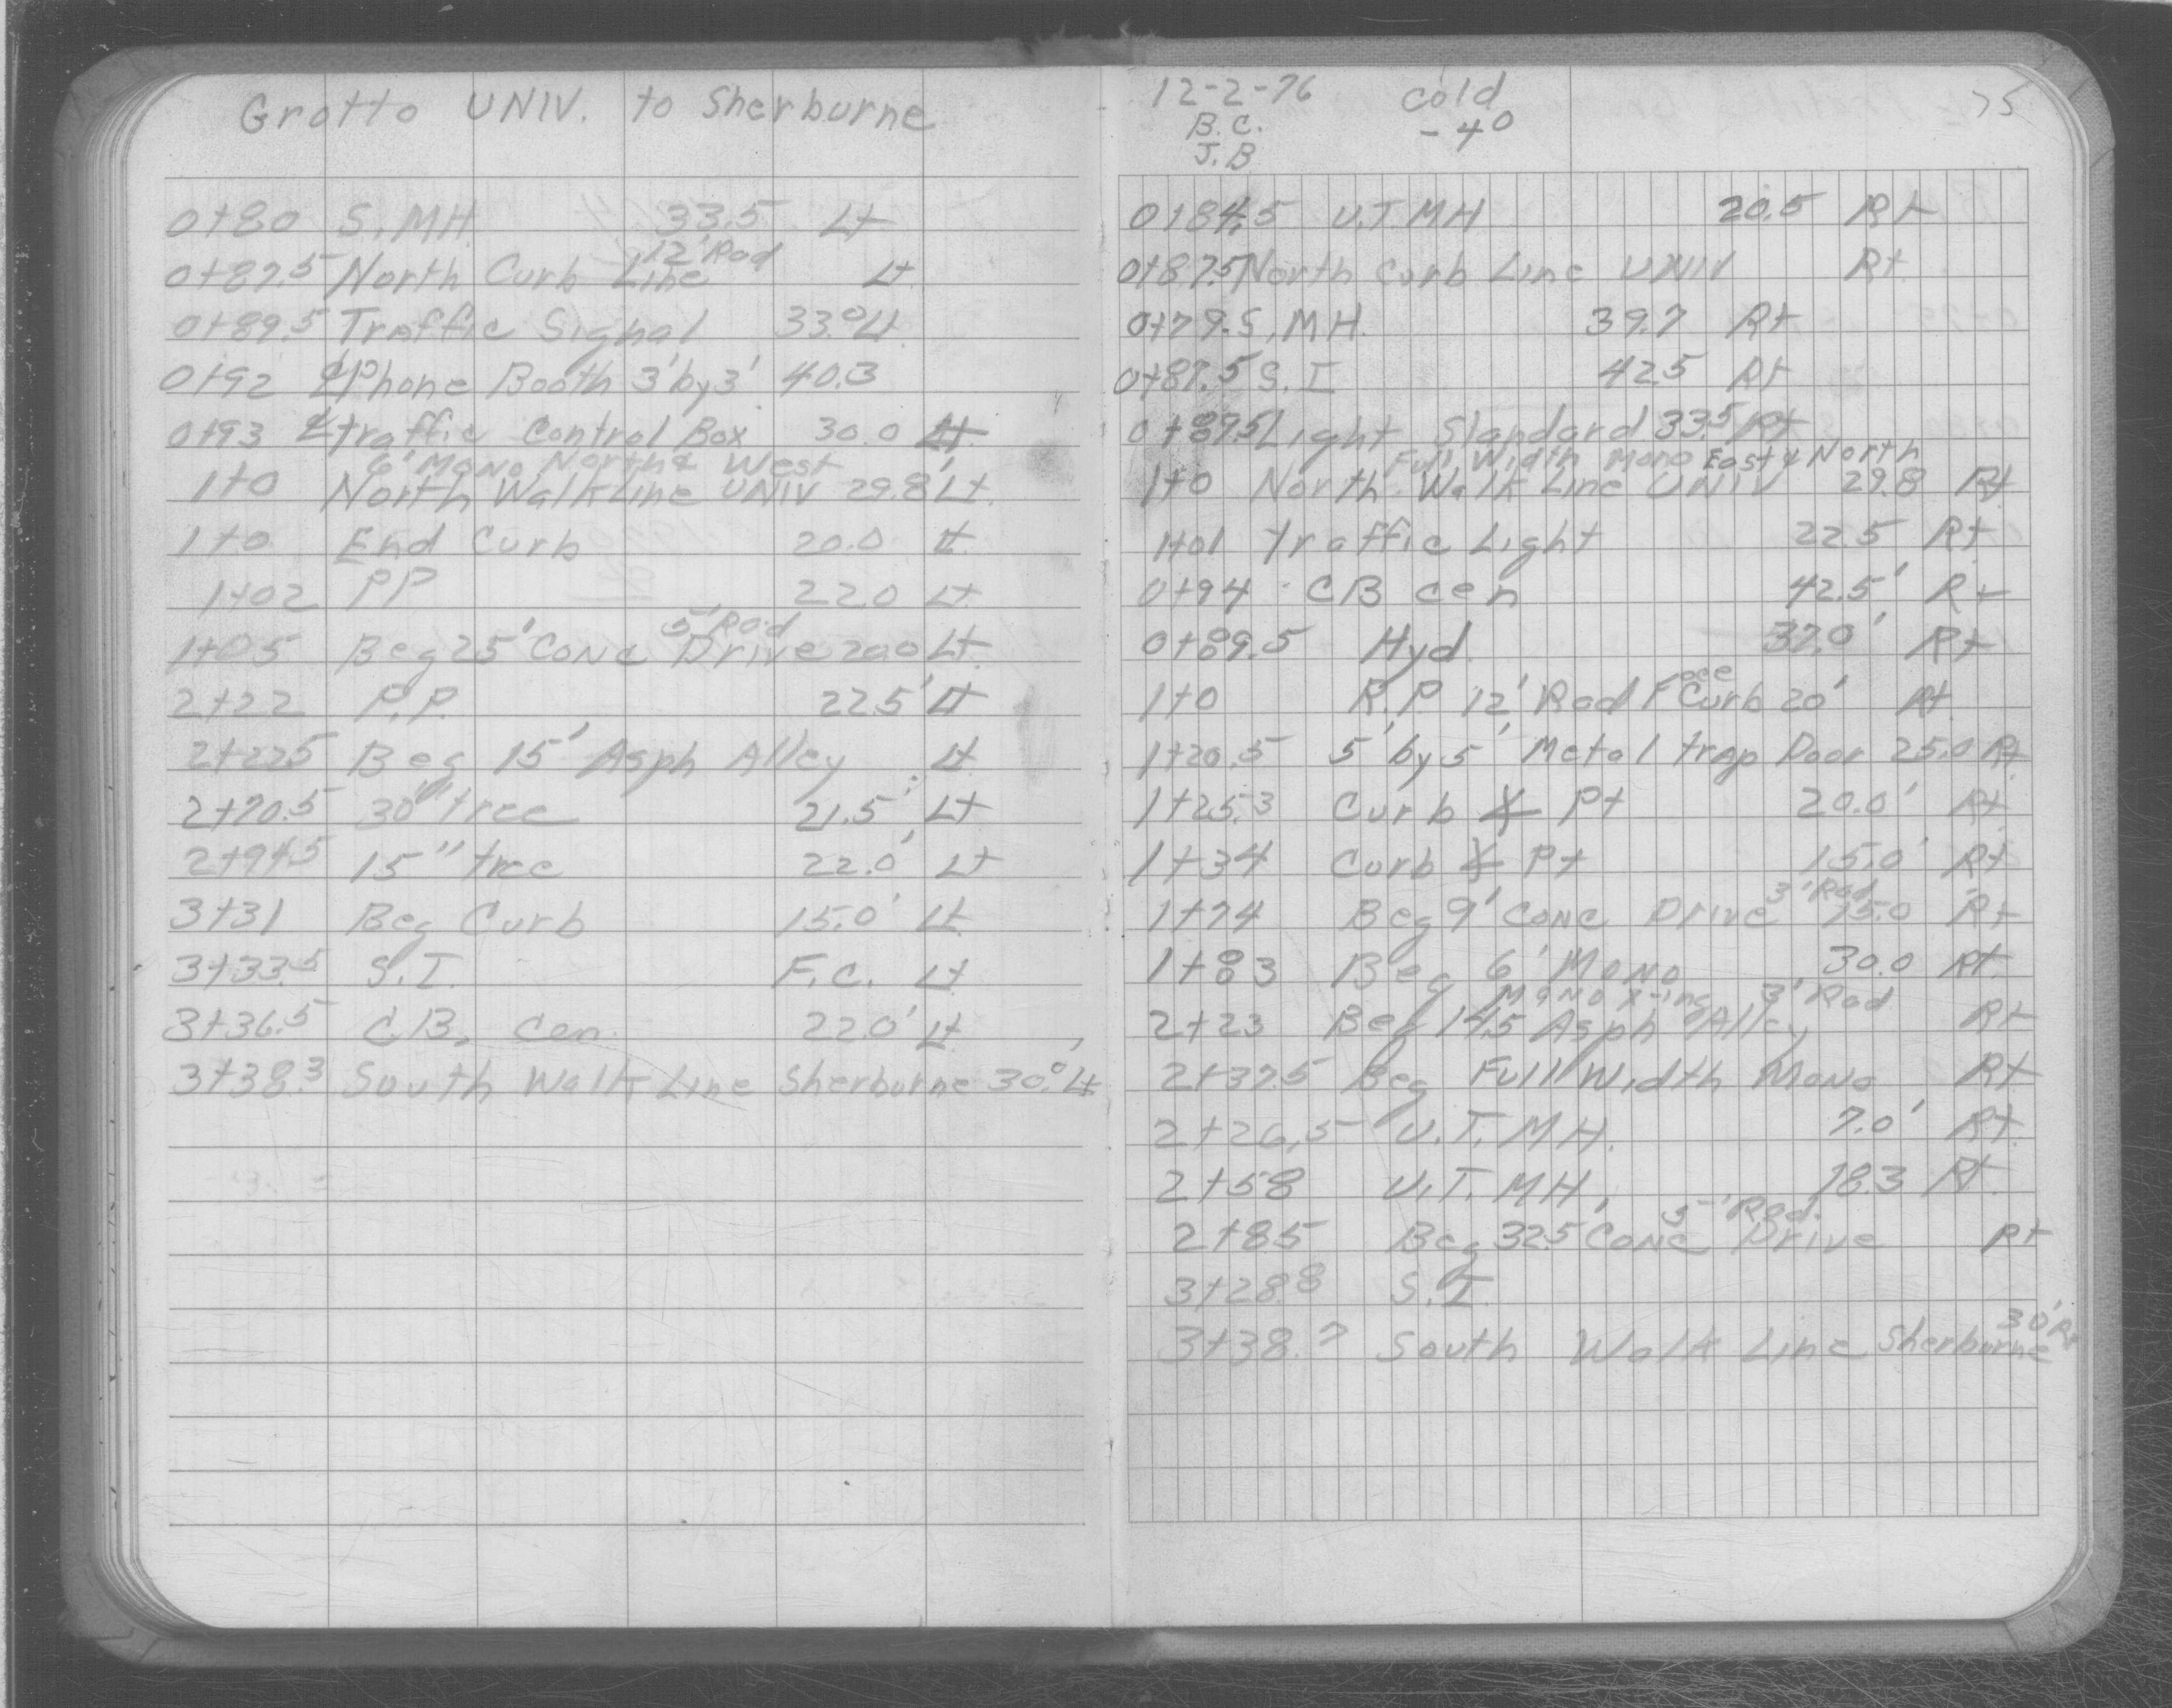 Grotto UNIV. to Sherburne
0+80 S. MH. 33.5 Lt
12' Rad
0+87.5 North Curb Line Lt
0+89.5 Traffic Signal 33.0 Lt.
0+92 ℄ Phone Booth 3' by 3' 40.3
0+93 ℄ traffic Control Box 30.0 Lt
6' Mono North & West
1+0 North Walk Line UNIV 29.8' Lt.
1+0 End Curb 20.0 Lt
1+02 PP 22.0 Lt
5' Rad
1+05 Beg 25' Conc Drive 20.0 Lt
2+22 P.P. 22.5' Lt
2+22.5 Beg 15' Asph Alley Lt
2+70.5 30" tree 21.5' Lt
2+94.5 15" tree 22.0' Lt
3+31 Beg Curb 15.0' Lt
3+33.5 S.I. F.C. Lt
3+36.5 C.B. Cen. 22.0' Lt
3+38.3 South Walk Line Sherburne 30.0 Lt
12-2-76 cold 75
B.C. -4°
J.B
0+84.5 U.T MH 20.5 Rt
0+87.5 North Curb Line UNIV Rt
0+79. S. MH. 39.7 Rt
0+87.5 S. I 42.5 Rt
0+87.5 Light Standard 33.5 Rt
Full Width Mono East & North
1+0 North Walk Line UNIV 29.8 Rt
1+01 Traffic Light 22.5 Rt
0+94 CB cen 42.5' Rt
0+89.5 Hyd. 37.0' Rt
1+0 R.P. 12' Rad Face Curb 20' Rt
1+20.5 5' by 5' Metal trap Door 25.0 Rt
1+25.3 Curb ∠ Pt 20.0' Rt
1+34 Curb ∠ Pt 15.0' Rt
3' Rad
1+74 Beg 9' Conc Drive 15.0 Rt
1+83 Beg 6' Mono 30.0 Rt
Mono X-ing 3' Rad
2+23 Beg 14.5 Asph Alley Rt
2+37.5 Beg Full Width Mono Rt
2+26.5 U.T. MH. 7.0' Rt.
2+58 U.T. MH. 18.3 Rt
5' Rad.
2+85 Beg 32.5' Conc Drive Rt
3+28.8 S.I.
3+38.7 South Walk Line Sherburne 30' Rt